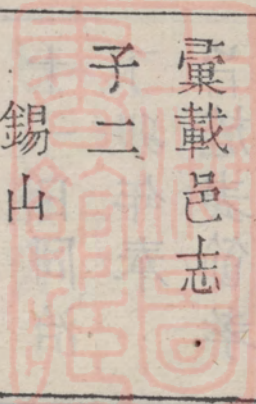 彚載邑志
子二
錫山